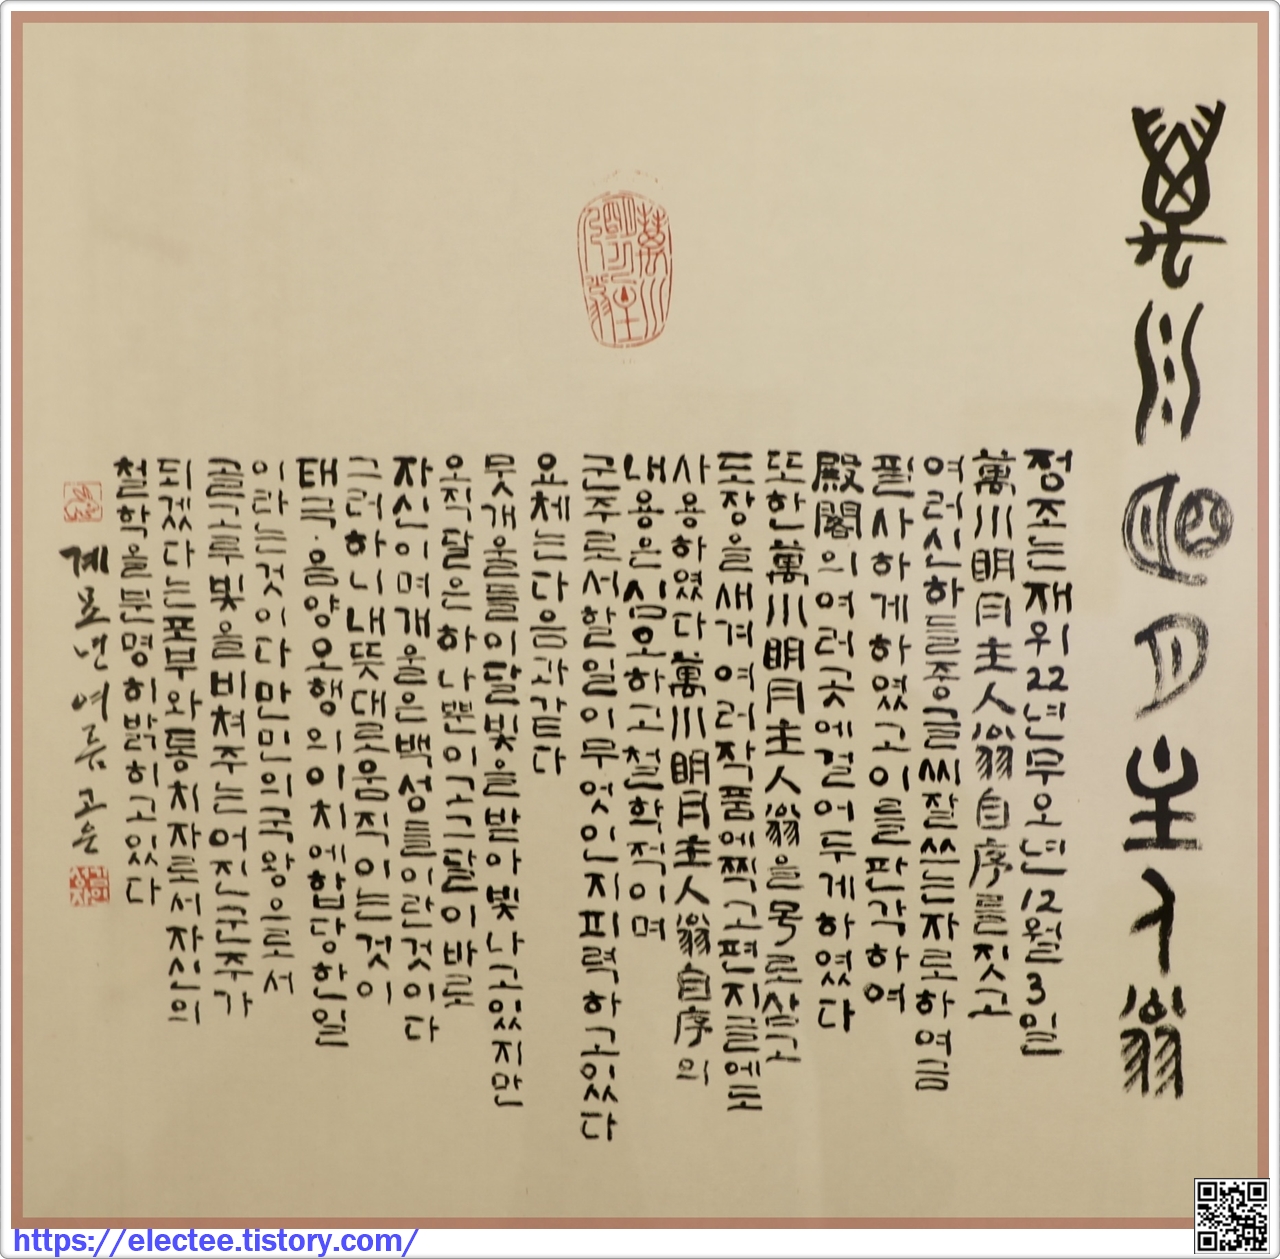 萬川明月主人翁
정조는재위22년무오년12월3일
萬川明月主人翁自序를짓고
여러신하들중글씨잘쓰는자로하여금
필사하게하였고이를판각하여
殿閣의여러곳에걸어두게하였다
또한萬川明月主人翁을号로삼고
도장을새겨여러작품에찍고편지글에도
사용하였다萬川明月主人翁自序의
내용은심오하고철학적이며
군주로서할일이무엇인지피력하고있다
요체는다음과같다
뭇개울들이달빛을받아빛나고있지만
오직달은하나뿐이고그달이바로
자신이며개울은백성들이란것이다
그러하니내뜻대로움직이는것이
태극·음양오행의이치에합당한일
이라는것이다만민의국왕으로서
골고루빛을비쳐주는어진군주가
되겠다는포부와통치자로서자신의
철학을분명히밝히고있다
계묘년여름고은
萬川明月主人翁
https://electee.tistory.com/